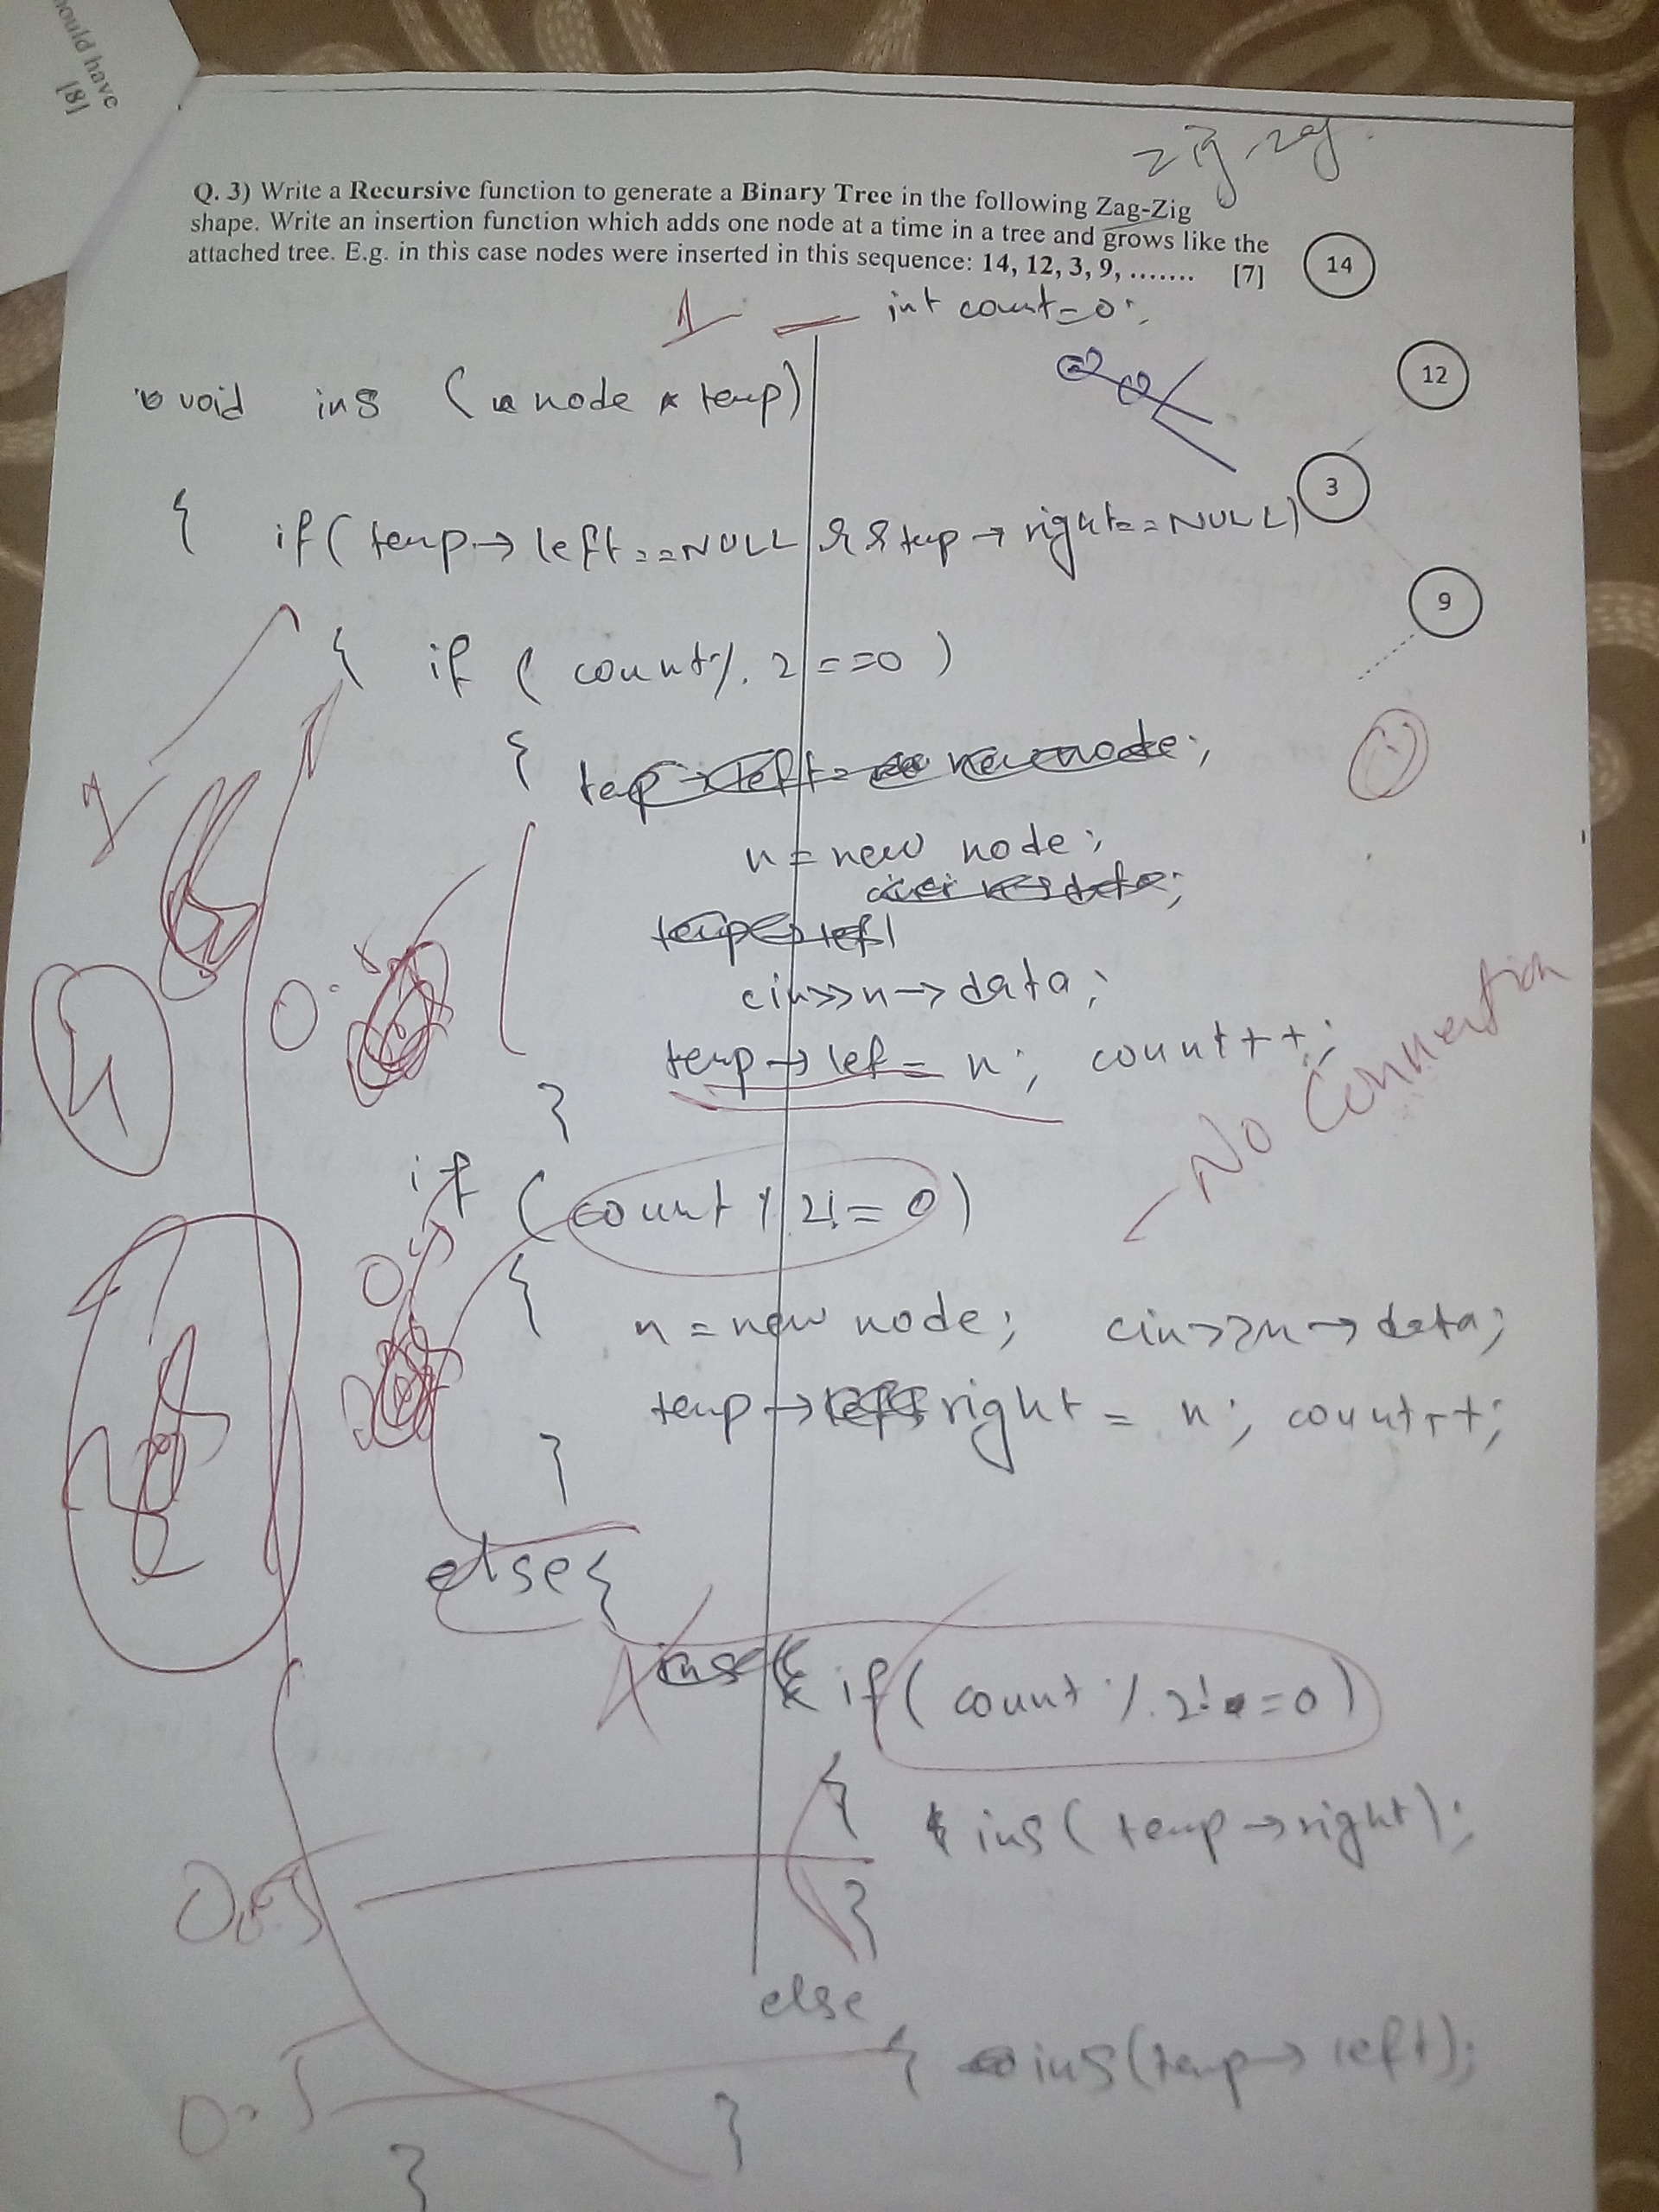 ould have
[8]
zig-zag.
Q. 3) Write a Recursive function to generate a Binary Tree in the following Zag-Zig
shape. Write an insertion function which adds one node at a time in a tree and grows like the
attached tree. E.g. in this case nodes were inserted in this sequence: 14, 12, 3, 9, ....... [7]
14
12
3
9
1
int count=0;
void ins (node * temp)
{ if(temp→left==NULL && temp→right==NULL)
{ if (count%2==0)
{ temp→left= new node;
n=new node;
temp→left
cin>>n→data;
temp→lef= n; count++;
}
No Connention
if (count%2!=0)
{
n=new node; cin>>n→data;
temp→right = n; count++;
}
else{
if(count%2!==0)
{ ins(temp→right);
}
else
{ ins(temp→left);
}
}
1
0.5
0.5
0.5